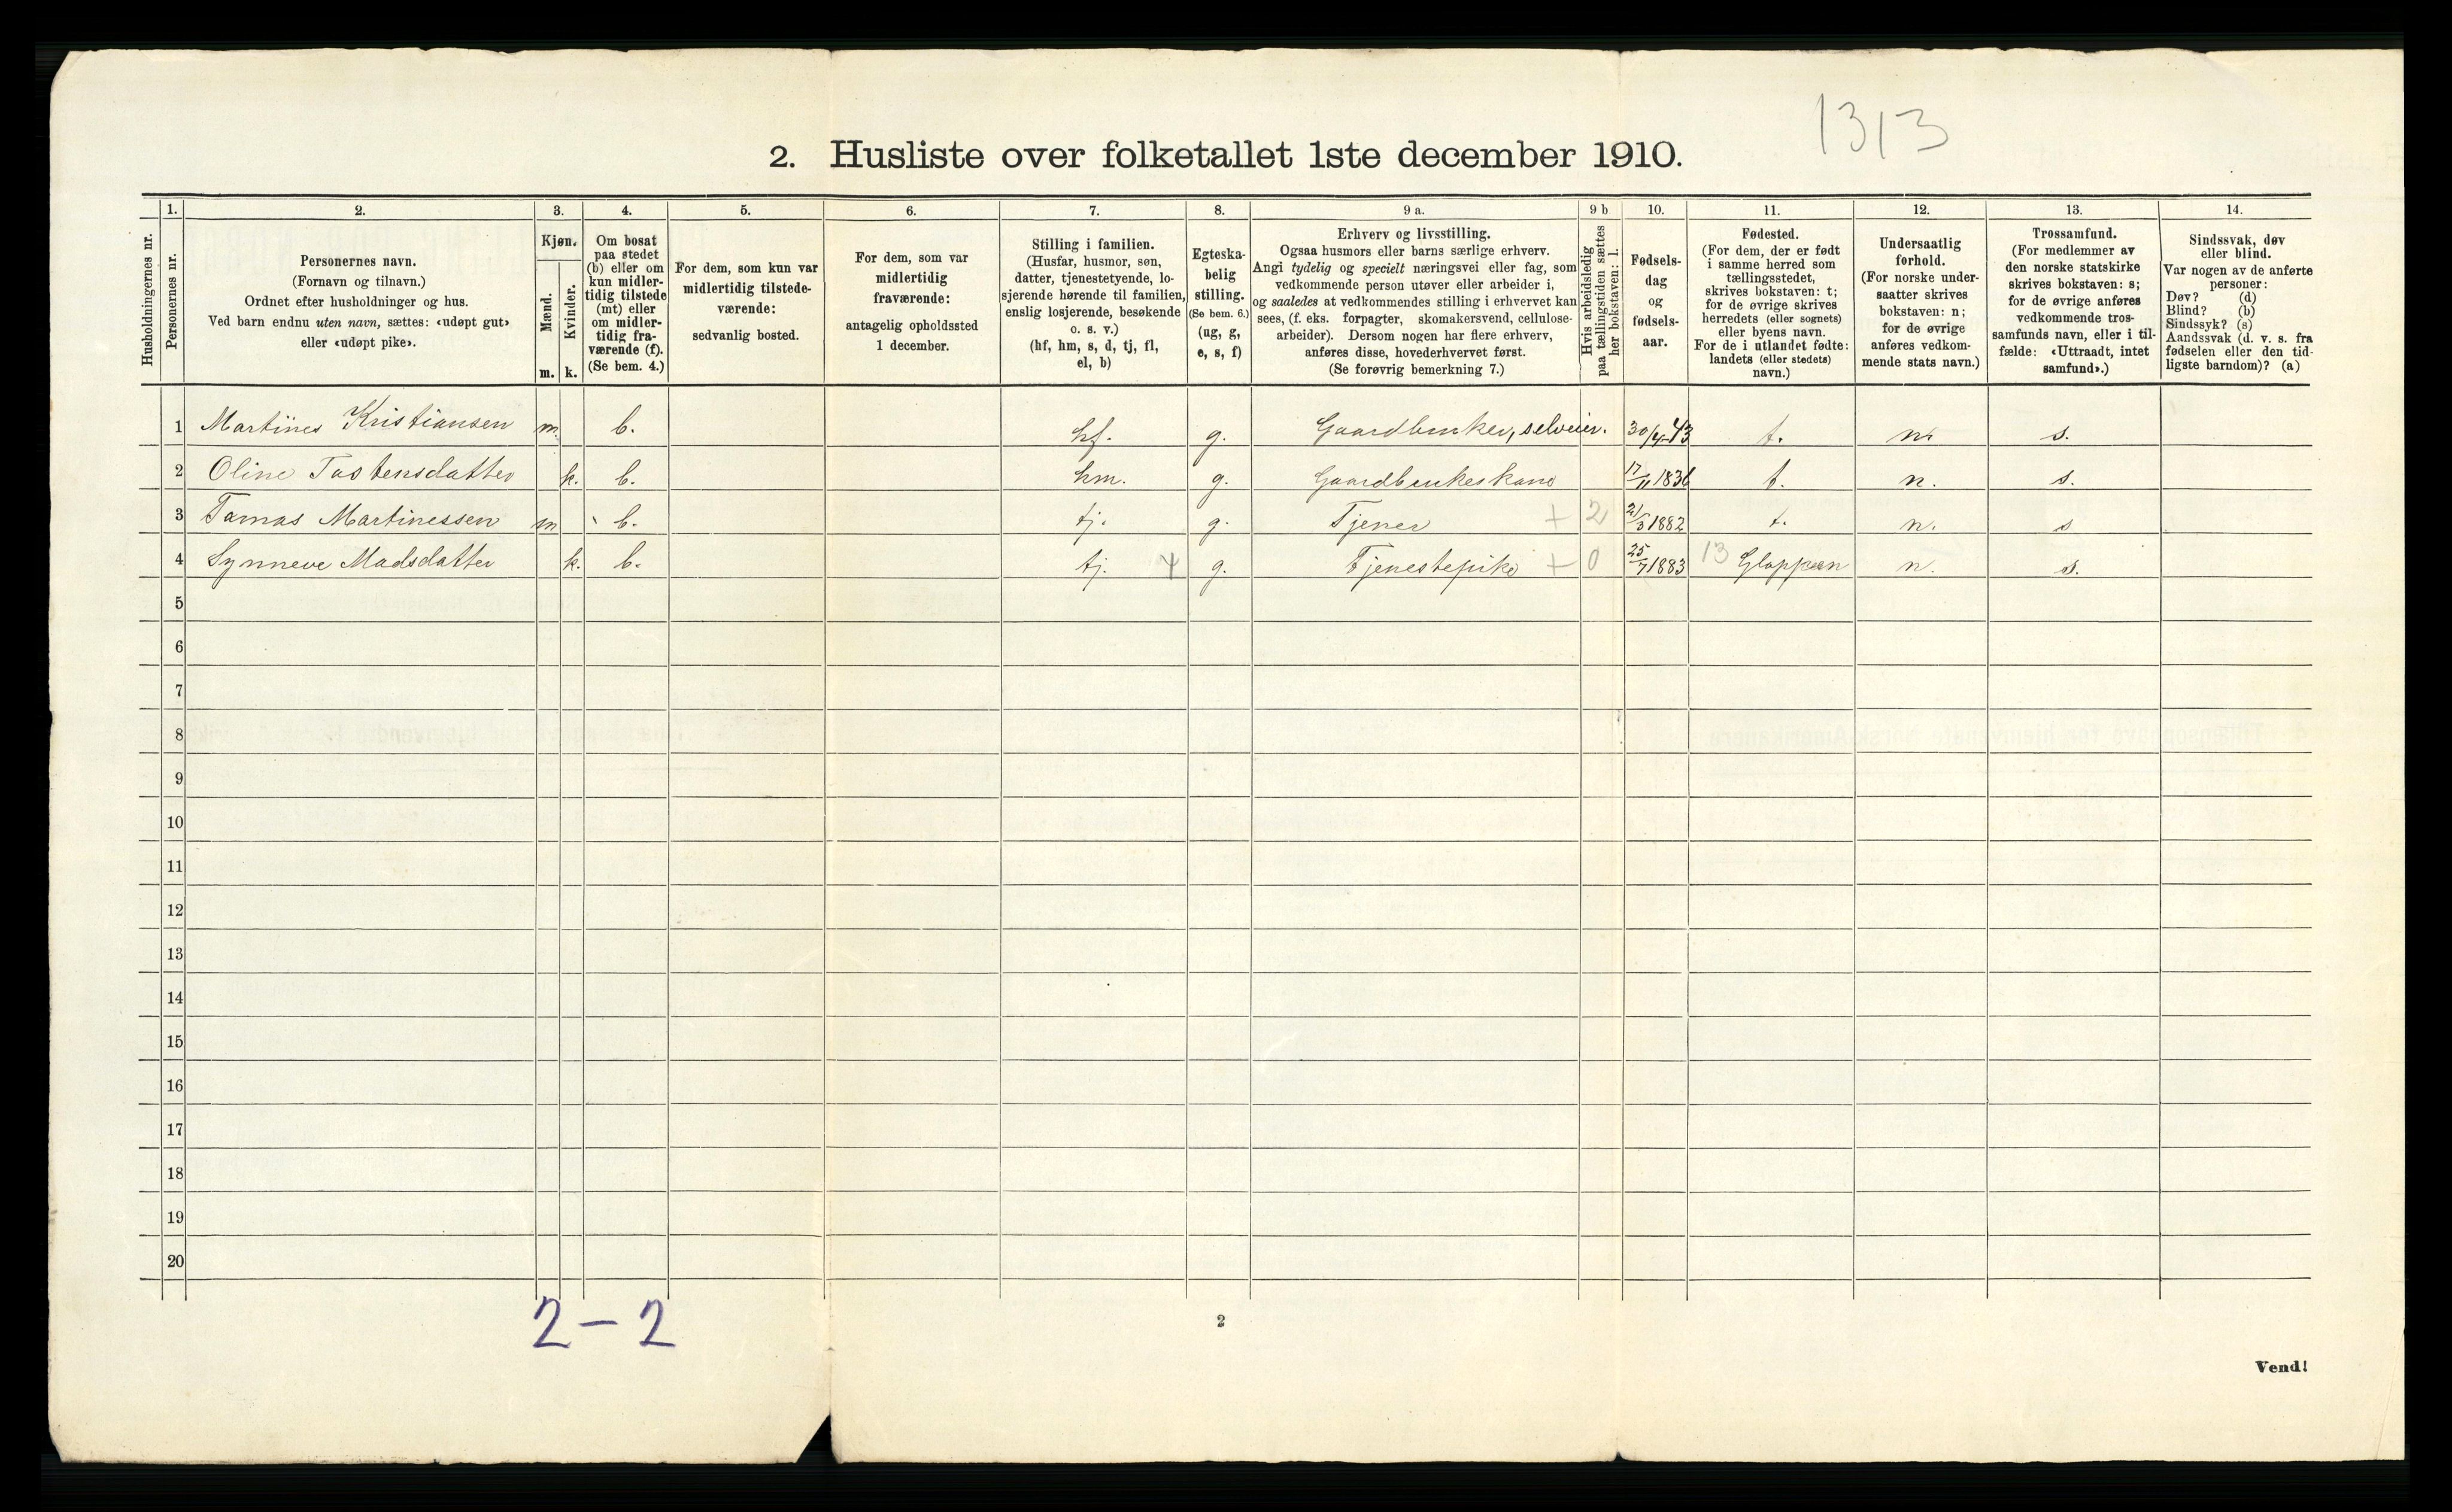 1313
2. Husliste over folketallet 1ste december 1910.
Husholdningernes nr.
1.
Personernes nr.
2.
Personernes navn.
(Fornavn og tilnavn.)
Ordnet efter husholdninger og hus.
Ved barn endnu uten navn, sættes: «udøpt gut»
eller «udøpt pike».
3.
Kjøn.
Mænd.
Kvinder.
m. k.
4.
Om bosat
paa stedet
(b) eller om
kun midler-
tidig tilstede
(mt) eller
om midler-
tidig fra-
værende (f).
(Se bem. 4.)
5.
For dem, som kun var
midlertidig tilstede-
værende:
sedvanlig bosted.
6.
For dem, som var
midlertidig
fraværende:
antagelig opholdssted
1 december.
7.
Stilling i familien.
(Husfar, husmor, søn,
datter, tjenestetyende, lo-
sjerende hørende til familien,
enslig losjerende, besøkende
o. s. v.)
(hf, hm, s, d, tj, fl,
el, b)
8.
Egteska-
belig
stilling.
(Se bem. 6.)
(ug, g,
e, s, f)
9 a.
Erhverv og livsstilling.
Ogsaa husmors eller barns særlige erhverv.
Angi tydelig og specielt næringsvei eller fag, som
vedkommende person utøver eller arbeider i,
og saaledes at vedkommendes stilling i erhvervet kan
sees, (f. eks. forpagter, skomakersvend, cellulose-
arbeider). Dersom nogen har flere erhverv,
anføres disse, hovederhvervet først.
(Se forøvrig bemerkning 7.)
9 b
Hvis arbeidsledig
paa tællingstiden sættes
her bokstaven: l.
10.
Fødsels-
dag
og
fødsels-
aar.
11.
Fødested.
(For dem, der er født
i samme herred som
tællingsstedet,
skrives bokstaven: t;
for de øvrige skrives
herredets (eller sognets)
eller byens navn.
For de i utlandet fødte:
landets (eller stedets)
navn.)
12.
Undersaatlig
forhold.
(For norske under-
saatter skrives
bokstaven: n;
for de øvrige
anføres vedkom-
mende stats navn.)
13.
Trossamfund.
(For medlemmer av
den norske statskirke
skrives bokstaven: s;
for de øvrige anføres
vedkommende tros-
samfunds navn, eller i til-
fælde: «Uttraadt, intet
samfund».)
14.
Sindssvak, døv
eller blind.
Var nogen av de anførte
personer:
Døv? (d)
Blind? (b)
Sindssyk? (s)
Aandssvak (d. v. s. fra
fødselen eller den tid-
ligste barndom)? (a)
1 Martines Kristiansen m. b. hf. g. Gaardbruker, selveier. 30/4-43 t. n. s.
2 Oline Tostensdatter k. b. hm. g. Gaardbrukeskone 17/11 1836 t. n. s.
3 Tomas Martinessen m b. tj. g. Tjener + 2 21/3 1882 t. n. s
4 Synneve Madsdatter k. b. tj. 4 g. Tjenestepike + 0 25/7 1883 13 Gloppen n. s.
5
6
7
8
9
10
11
12
13
14
15
16
17
18
19
20
2-2
2
Vend!